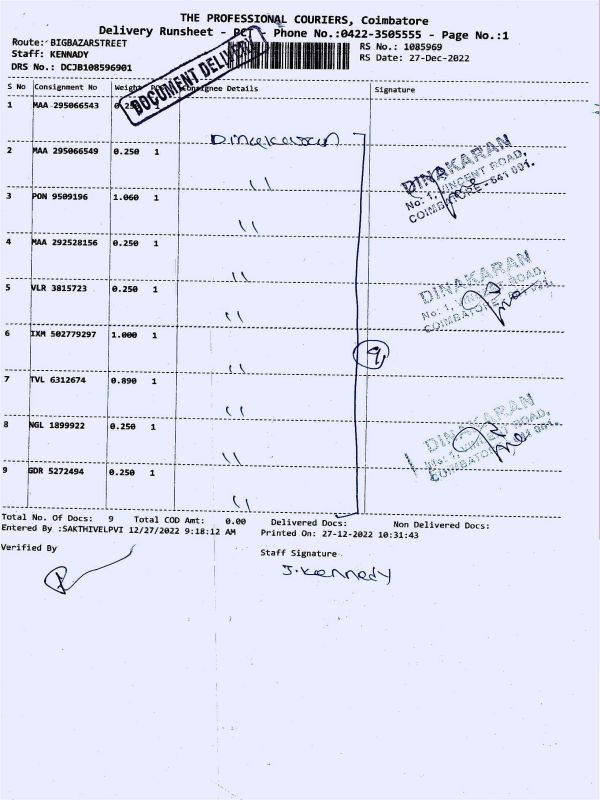 THE PROFESSIONAL COURIERS, Coimbatore
Delivery Runsheet - PCT - Phone No.:0422-3505555 - Page No.:1
Route: BIGBAZARSTREET
RS No.: 1085969
Staff: KENNADY
RS Date: 27-Dec-2022
DRS No.: DCJB108596901
DOCUMENT DELIVERY
S No Consignment No Weight PCS Consignee Details Signature
1 MAA 295066543 0.250
Dinakaran
2 MAA 295066549 0.250 1
"
DINAKARAN
No: 1, VINCENT ROAD,
COIMBATORE - 641 001.
3 PON 9509196 1.060 1
"
4 MAA 292528156 0.250 1
"
5 VLR 3815723 0.250 1
"
DINAKARAN
No: 1, VINCENT ROAD,
COIMBATORE - 641 001.
6 IXM 502779297 1.000 1
"
9
7 TVL 6312674 0.890 1
"
8 NGL 1899922 0.250 1
"
DINAKARAN
No: 1, VINCENT ROAD,
COIMBATORE - 641 001.
9 GDR 5272494 0.250 1
"
Total No. Of Docs: 9 Total COD Amt: 0.00 Delivered Docs: Non Delivered Docs:
Entered By :SAKTHIVELPVI 12/27/2022 9:18:12 AM Printed On: 27-12-2022 10:31:43
Verified By
Staff Signature
J. Kennedy